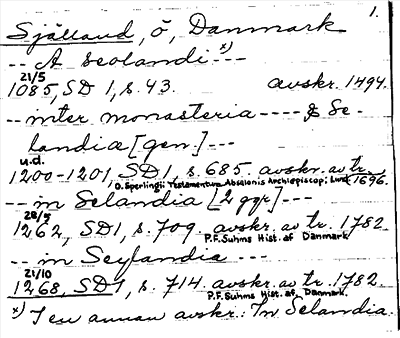 1.
Själland, ö, Danmark
-- A seolandi x) --
21/5
1085, SD 1, s. 43. avskr. 1494.
-- inter monasteria ---- & Se-
landia [gen.] ---
u.d.
1200-1201, SD 1, s. 685. avskr. av tr. 1696.
O. Sperlingii Testamentum Absalonis Archiepiscopi, Lund
-- in Selandia [2 ggr] --
28/5
1262, SD 1, s. 709. avskr. av tr. 1782.
P.F. Suhms Hist. af Danmark
-- in Seylandia ---
21/10
1268, SD 1, s. 714. avskr. av tr. 1782.
P.F. Suhms Hist. af Danmark.
x) I en annan avskr.: In Selandia.